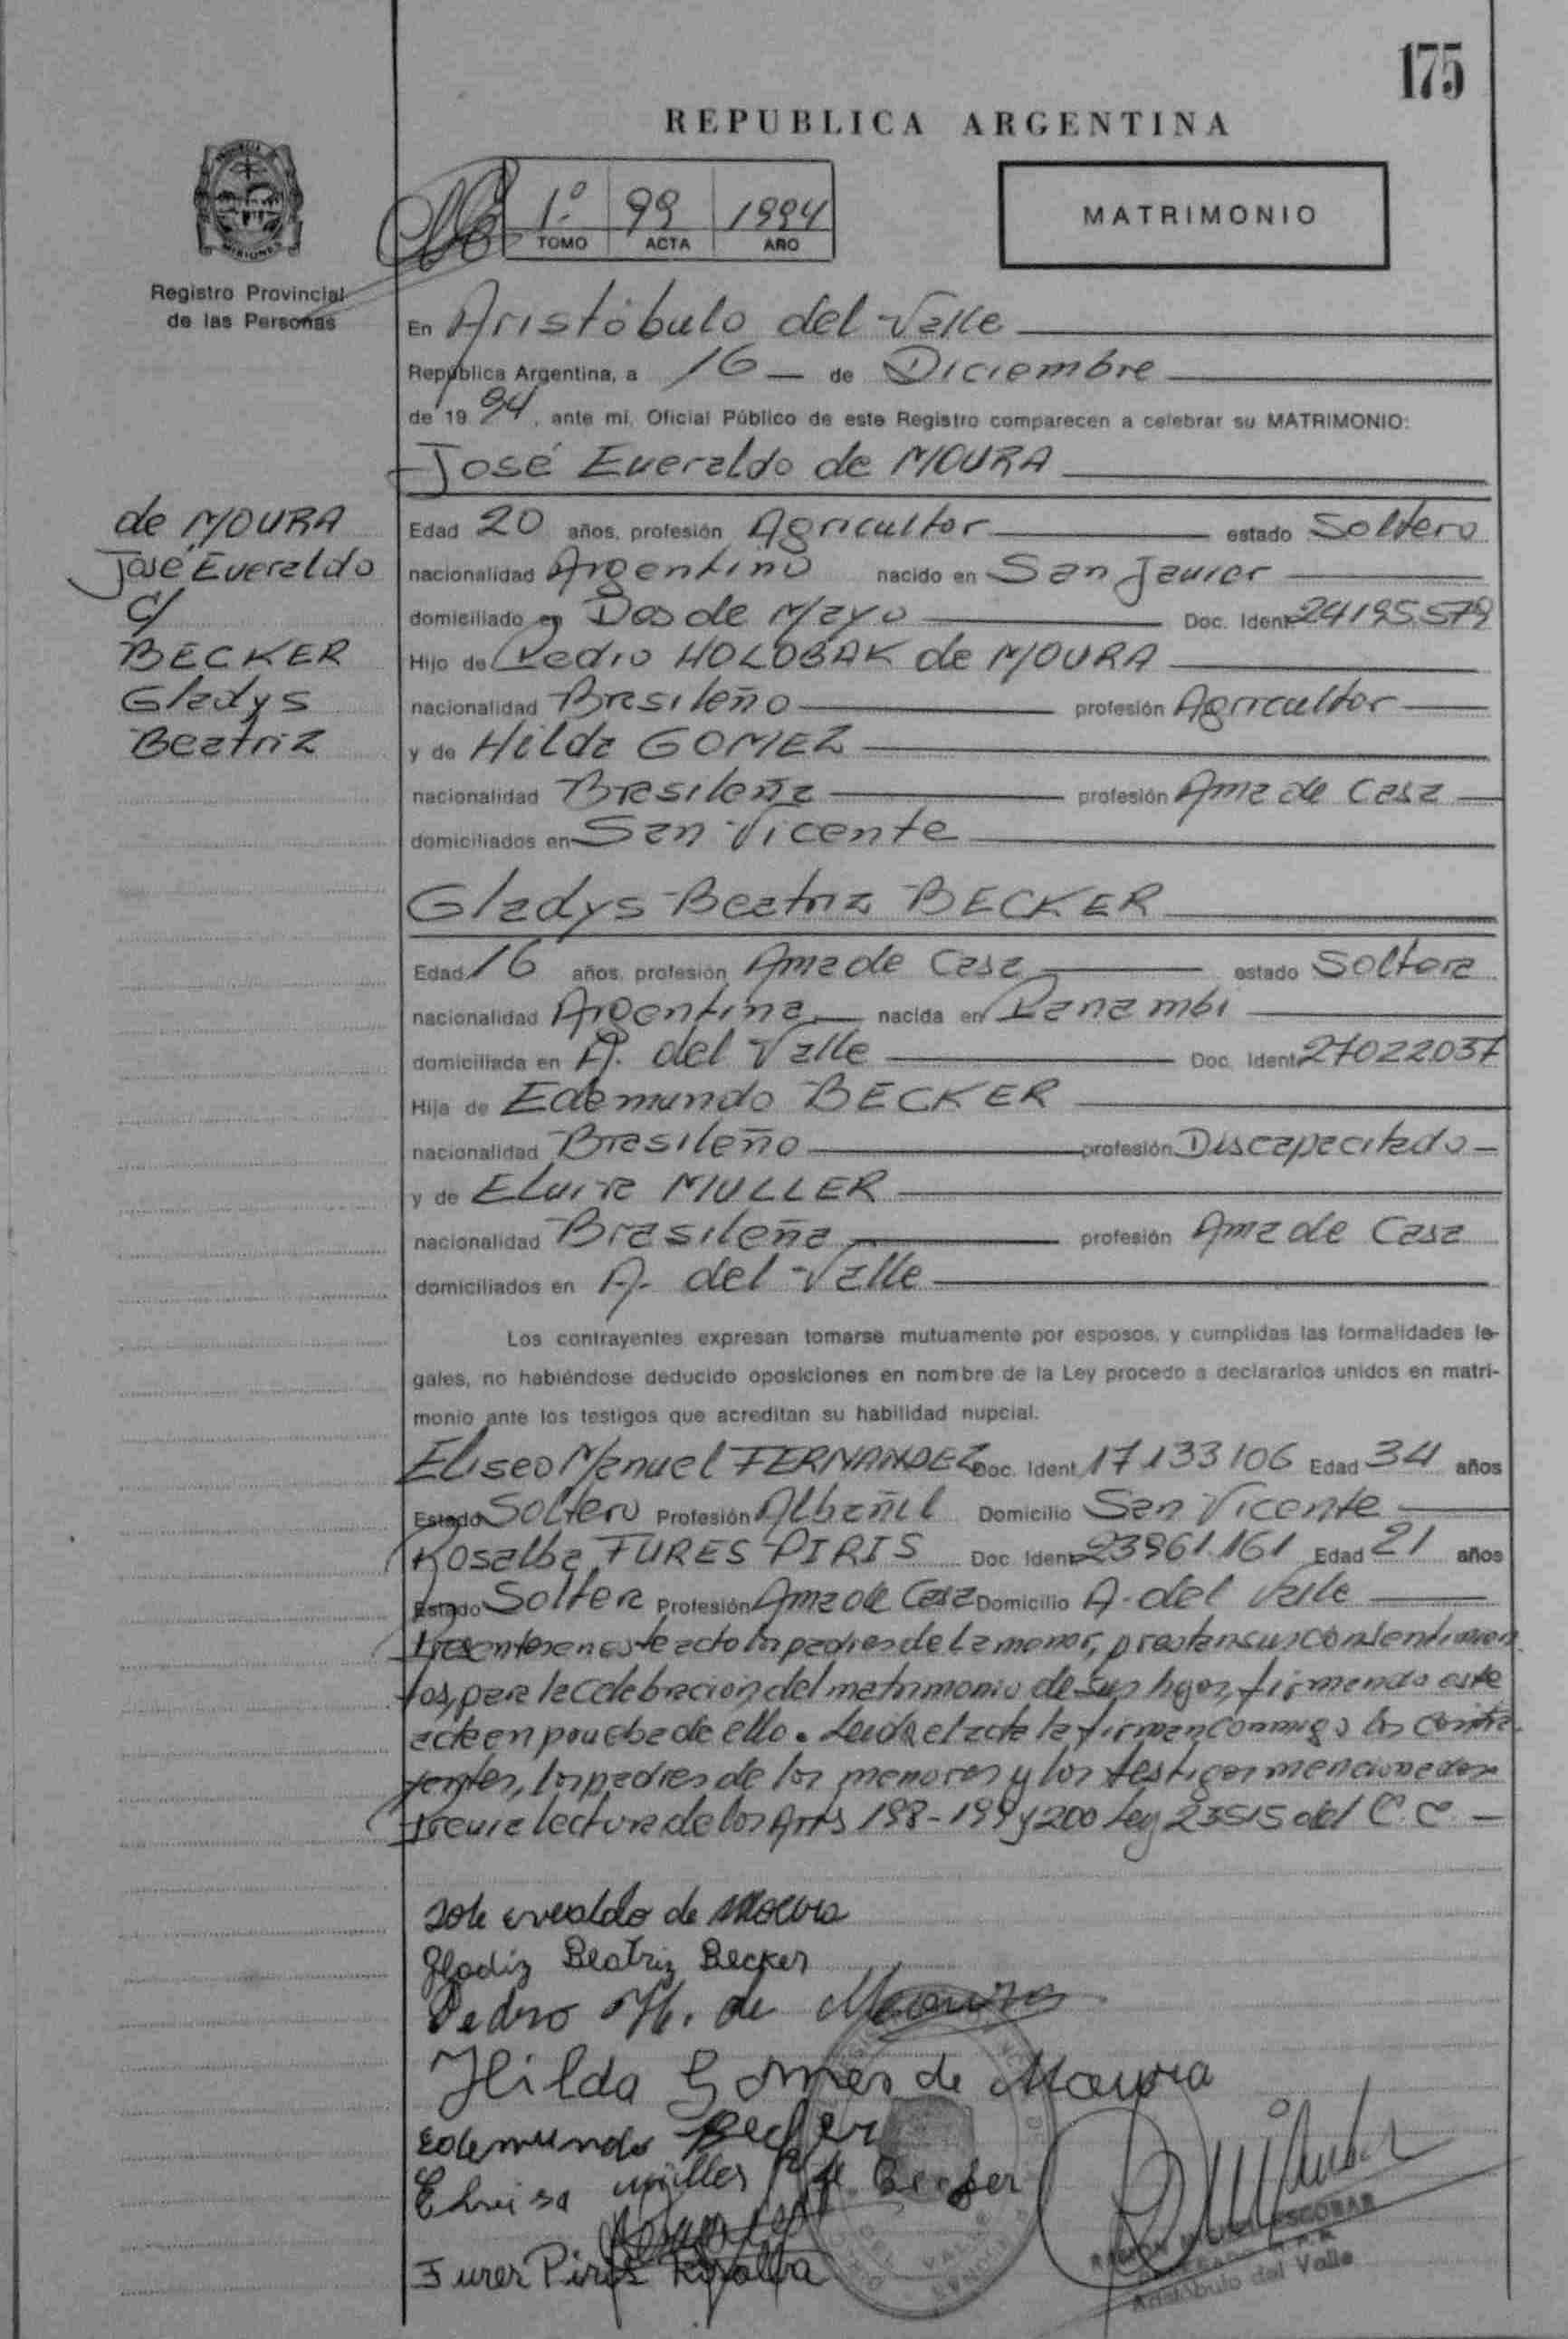 175
REPUBLICA ARGENTINA
1º 99 1994
TOMO ACTA AÑO
MATRIMONIO
Registro Provincial
de las Personas
En Aristóbulo del Valle
República Argentina, a 16 de Diciembre
de 1994, ante mi, Oficial Público de este Registro comparecen a celebrar su MATRIMONIO:
José Everaldo de MOURA
de MOURA
José Everaldo
c/
BECKER
Gladys
Beatriz
Edad 20 años, profesión Agricultor estado Soltero
nacionalidad Argentino nacido en San Javier
domiciliado en Dos de Mayo Doc. Ident. 24195.579
Hijo de Pedro HOLOBAK de MOURA
nacionalidad Brasileño profesión Agricultor
y de Hilda GOMEZ
nacionalidad Brasileña profesión Ama de Casa
domiciliados en San Vicente
Gladys Beatriz BECKER
Edad 16 años, profesión Ama de Casa estado Soltera
nacionalidad Argentina nacida en Panambi
domiciliada en A. del Valle Doc. Ident. 27022.037
Hija de Edemundo BECKER
nacionalidad Brasileño profesión Discapacitado
y de Elvira MULLER
nacionalidad Brasileña profesión Ama de Casa
domiciliados en A. del Valle
Los contrayentes expresan tomarse mutuamente por esposos, y cumplidas las formalidades le-
gales, no habiéndose deducido oposiciones en nombre de la Ley procedo a declararlos unidos en matri-
monio ante los testigos que acreditan su habilidad nupcial.
Eliseo Manuel FERNANDEZ Doc. Ident. 17.133.106 Edad 34 años
Estado Soltero Profesión Albañil Domicilio San Vicente
Rosalba FURES PIRIS Doc. Ident. 23961.161 Edad 21 años
Estado Soltera Profesión Ama de Casa Domicilio A. del Valle
Presentes en este acto los padres de la menor, prestan sus consentimien
tos, para la celebracion del matrimonio de sus hijos, firmando este
acta en prueba de ello. Leida el acta la firman conmigo los contra-
yentes, los padres de los menores y los testigos mencionados
previa lectura de los Arts 198-199 y 200 Ley 23515 del C.C.
Jose everaldo de Moura
Gladiz Beatriz Becker
Pedro H. de Moura
Hilda Gomes de Moura
Edemundo Becker
müller Becker
Furer Piris Rosalba
RAMON MIGUEL ESCOBAR
Aristóbulo del Valle